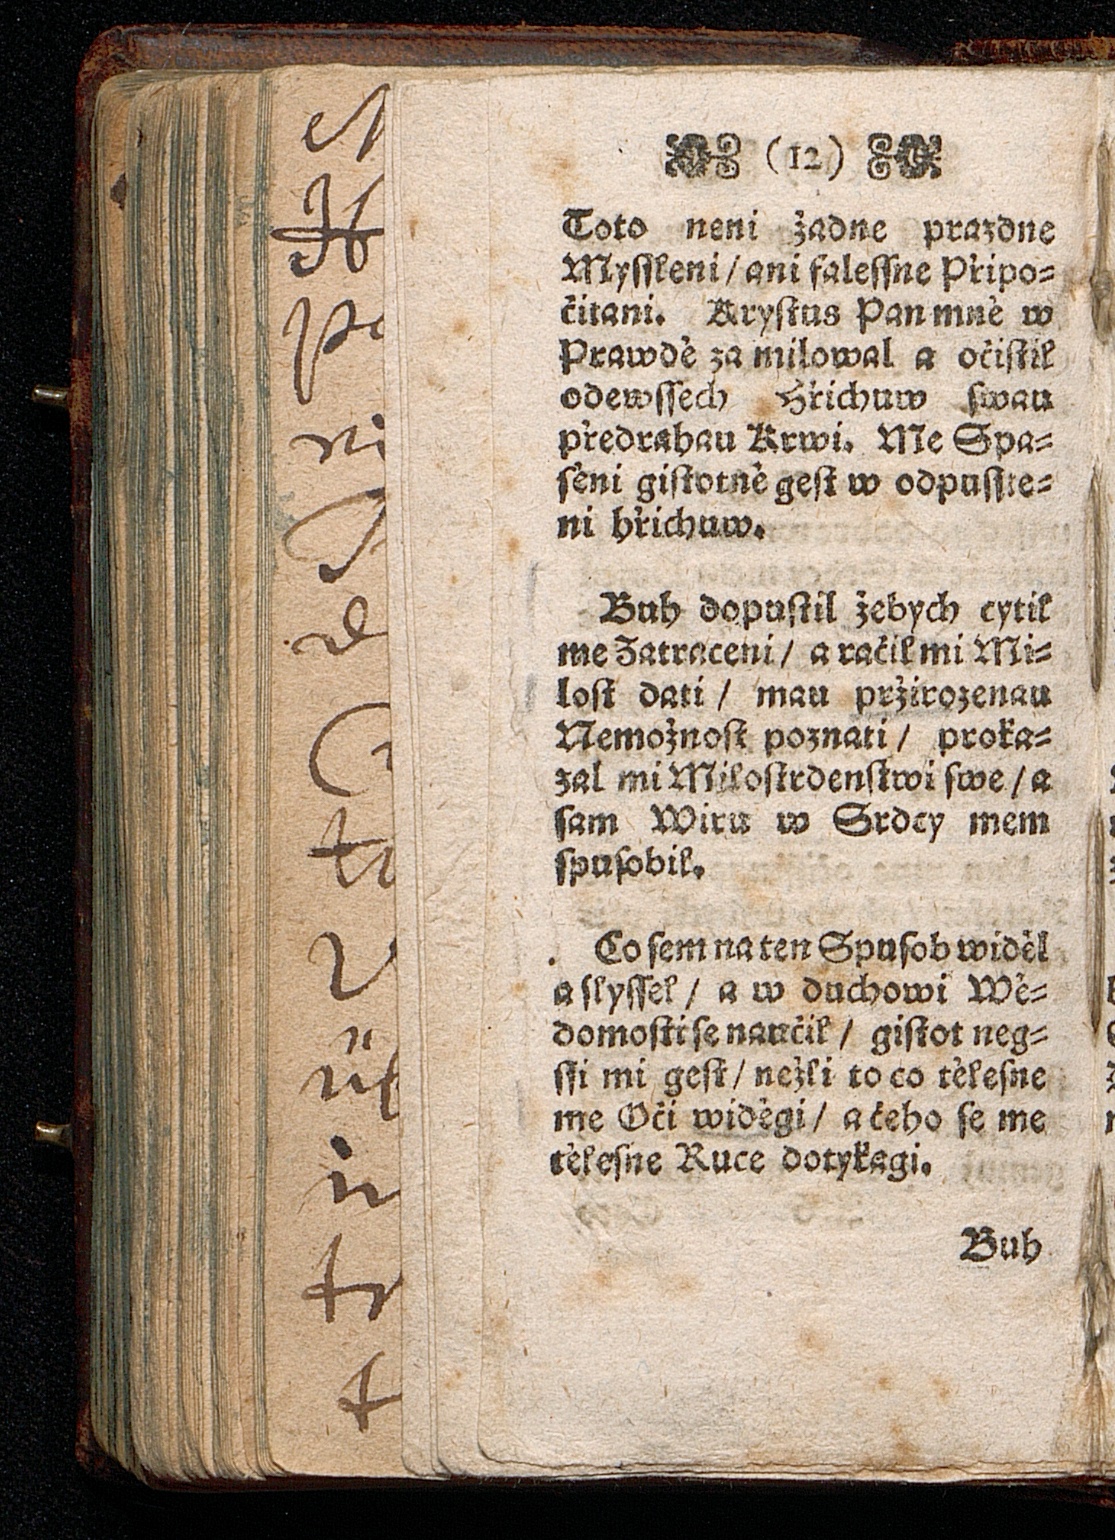 (12)
Toto neni žadne prazdne
Myſſleni / ani faleſſne Připo-
čitani. Kryſtus Pan mně w
Prawdě za milowal a očiſtil
odewſſech Hřichuw ſwau
předrahau Krwi. Me Spa-
ſěni giſtotně geſt w odpuſſte-
ni hřichuw.
Buh dopuſtil žebych cytil
me Zatraceni / a račil mi Mi-
loſt dati / mau pržirozenau
Nemožnoſt poznati / proka-
zal mi Miloſtrdenſtwi ſwe / a
ſam Wiru w Srdcy mem
ſpuſobil.
Co ſem na ten Spuſob widěl
a ſlyſſel / a w duchowi Wě-
domoſti ſe naučil / giſtot neg-
ſſi mi geſt / nežli to co těleſne
me Oči widěgi / a čeho ſe me
těleſne Ruce dotykagi.
Buh